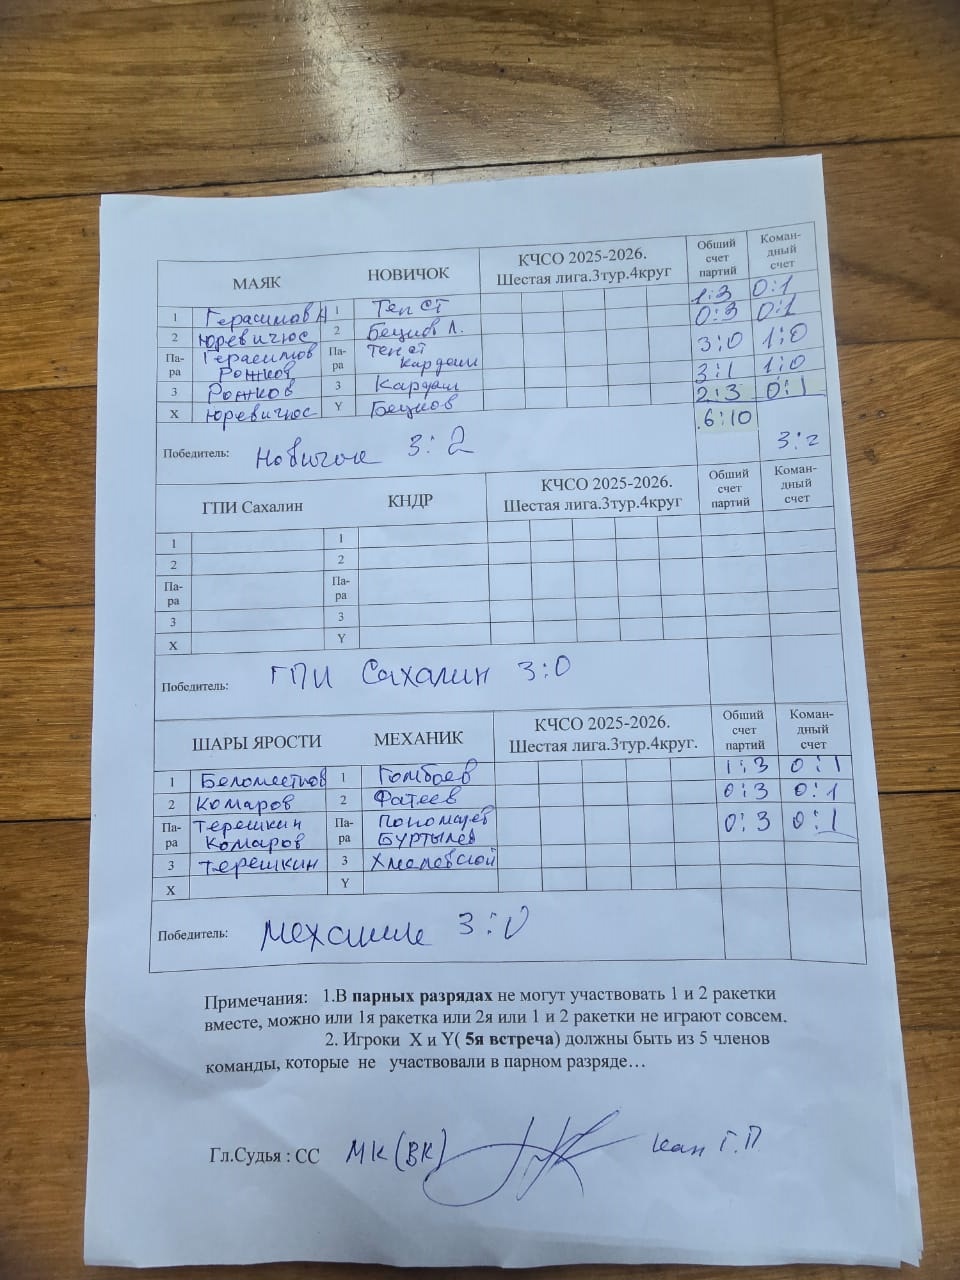 МАЯК НОВИЧОК КЧСО 2025-2026. Шестая лига.3тур.4круг Общий счет партий Коман-дный счет
1 Герасимов А 1 Теп СТ 1:3 0:1
2 Юревичюс 2 Бецков Л. 0:3 0:1
Па-ра Герасимов Рожков Па-ра Теп ст Кардаш 3:0 1:0
3 Рожков 3 Кардаш 3:1 1:0
X Юревичюс Y Бецков 2:3 0:1
6:10
Победитель: Новичок 3:2 3:2
ГПИ Сахалин КНДР КЧСО 2025-2026. Шестая лига.3тур.4круг Общий счет партий Коман-дный счет
1 1
2 2
Па-ра Па-ра
3 3
X Y
Победитель: ГПИ Сахалин 3:0
ШАРЫ ЯРОСТИ МЕХАНИК КЧСО 2025-2026. Шестая лига.3тур.4круг. Общий счет партий Коман-дный счет
1 Беломестнов 1 Гомбоев 1:3 0:1
2 Комаров 2 Фатеев 0:3 0:1
Па-ра Терешкин Комаров Па-ра Пономарев Буртылев 0:3 0:1
3 Терешкин 3 Хмелевской
X Y
Победитель: Механик 3:0
Примечания: 1.В парных разрядах не могут участвовать 1 и 2 ракетки
вместе, можно или 1я ракетка или 2я или 1 и 2 ракетки не играют совсем.
2. Игроки X и Y( 5я встреча) должны быть из 5 членов
команды, которые не участвовали в парном разряде…
Гл.Судья : СС МК(ВК) Кан Г.П